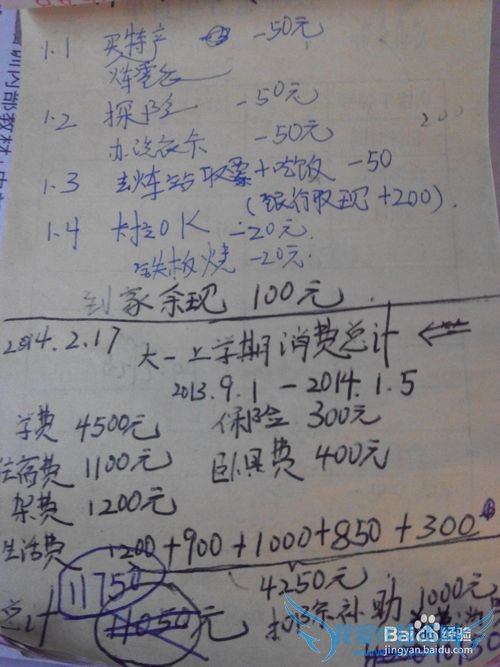 1.1 买特产 -50元
火车零食
1.2 探险 -50元
办洗衣卡 -50元
1.3 去火车站取票+吃饭 -50
(银行取现+200).
1.4 卡拉OK -20元.
铁板烧 -20元.
到家余现 100元.
2014.2.17
大一上学期消费总计
2013.9.1 - 2014.1.5
学费 4500元 保险 300元
住宿费 1100元 卧具费 400元
杂费 1200元
生活费 1200+900+1000+850+300
4250元
11750
总计 11050元 补助 1000元
Baidu百度经验
jingyan.baidu.com